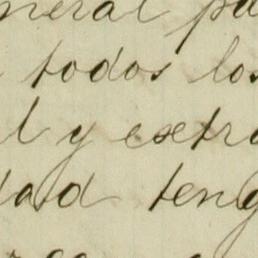 neral pa
todos los
l y extra
dad teng